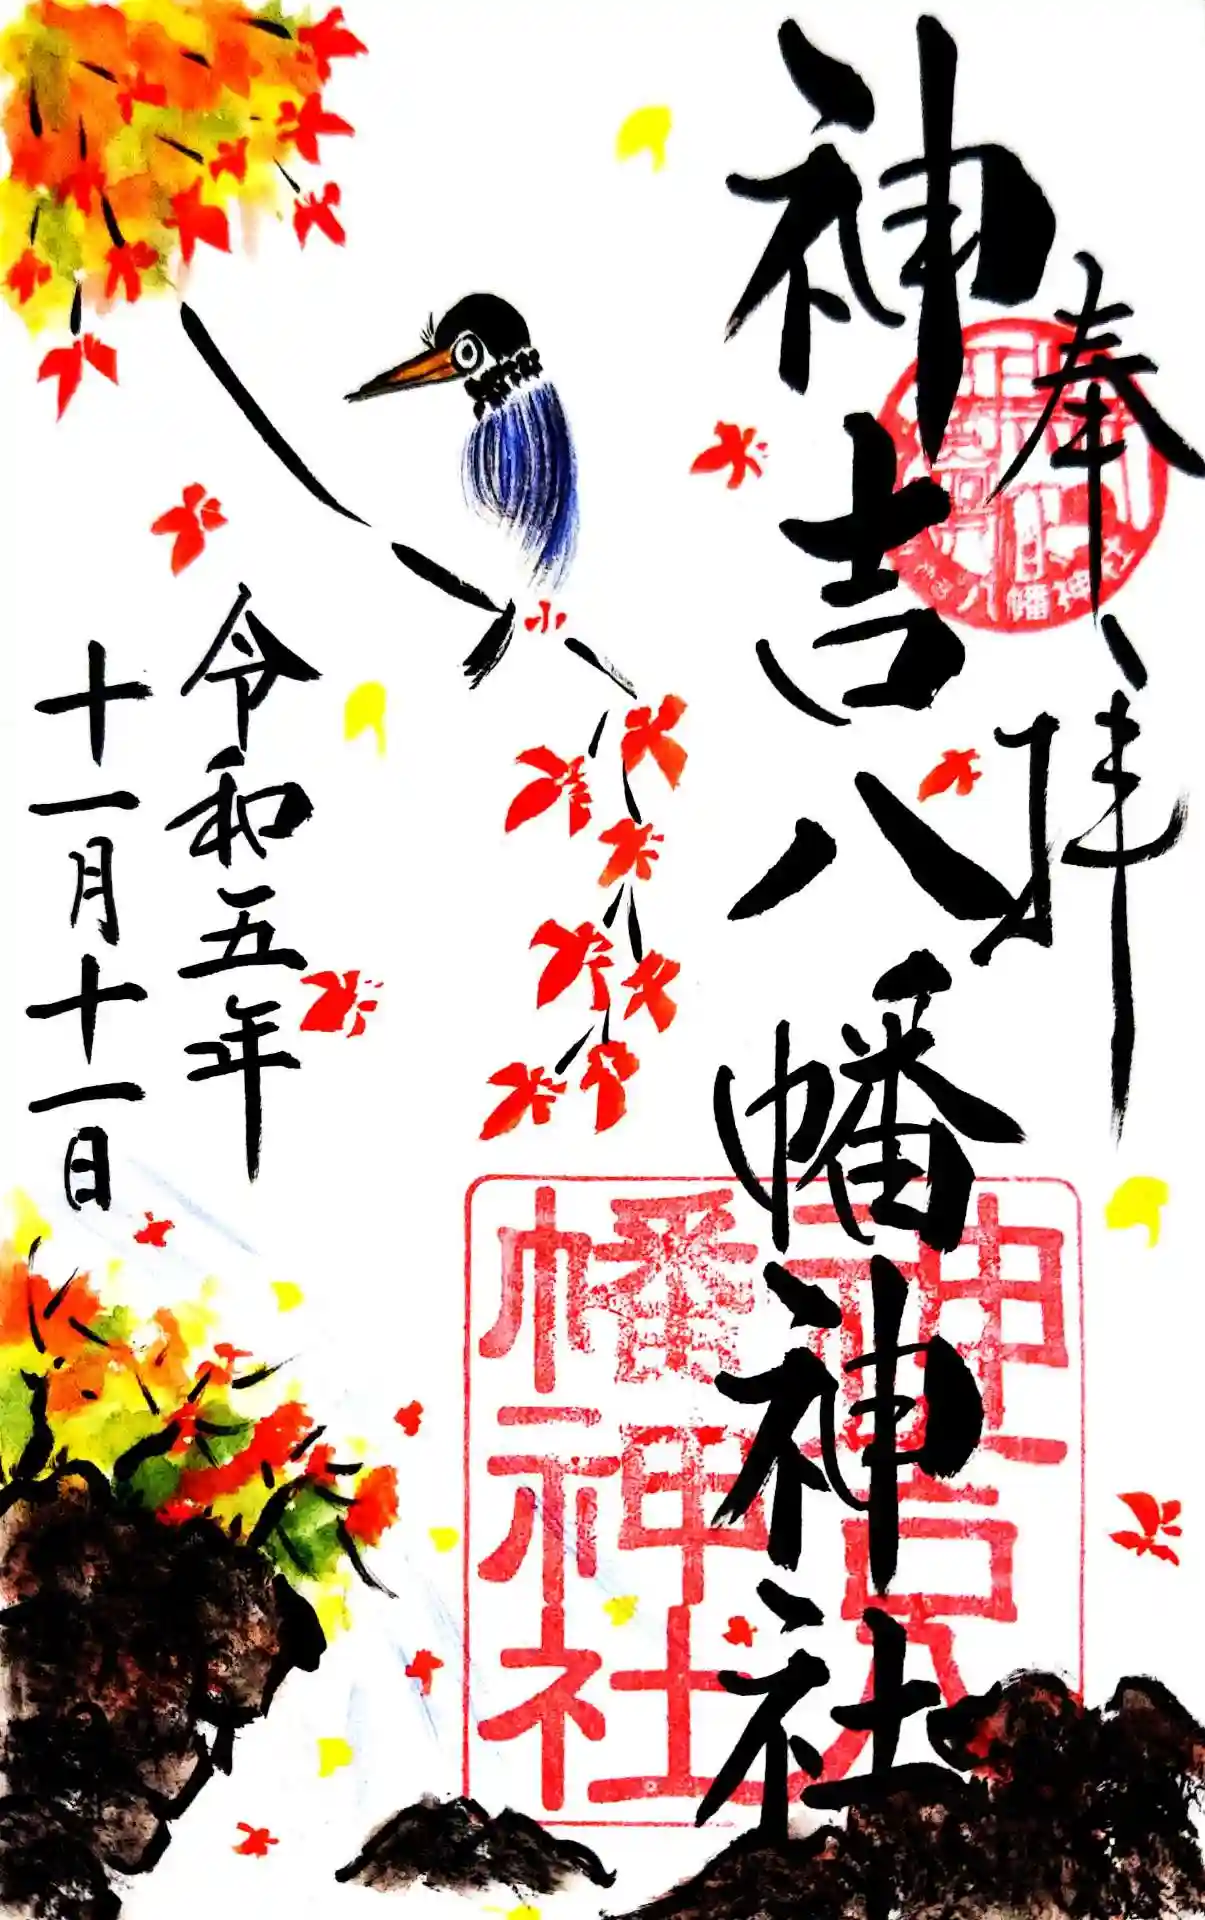 奉拝
神吉八幡神社
令和五年
十一月十一日
神吉八
幡神社
八幡神社